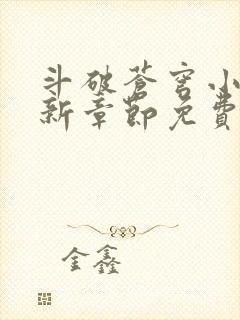 斗破苍穹小
新章節免費
金鑫